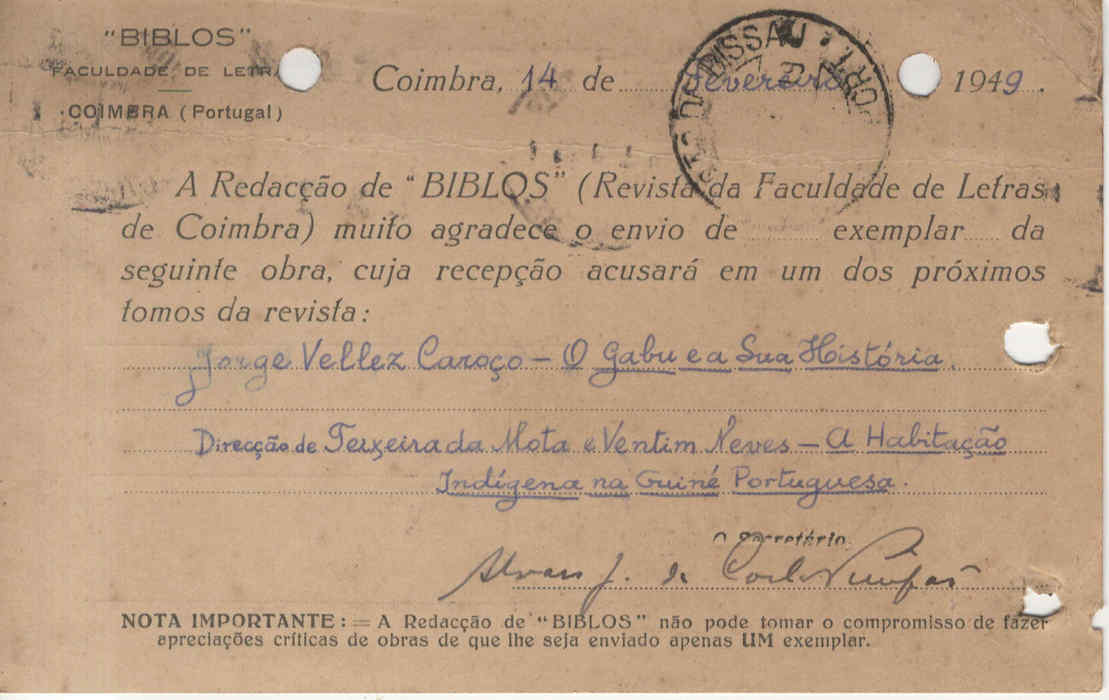 "BIBLOS"
FACULDADE DE LETRA
COIMBRA (Portugal)
Coimbra, 14 de Fevereiro 1949.
BISSAU
A Redacção de "BIBLOS" (Revista da Faculdade de Letras
de Coimbra) muito agradece o envio de ........ exemplar...... da
seguinte obra, cuja recepção acusará em um dos próximos
tomos da revista:
Jorge Vellez Caroço — O Gabu e a Sua História.
Direcção de Teixeira da Mota e Ventim Neves — A Habitação
Indígena na Guiné Portuguesa.
O Secretário,
NOTA IMPORTANTE: = A Redacção de "BIBLOS" não pode tomar o compromisso de fazer
apreciações críticas de obras de que lhe seja enviado apenas UM exemplar.